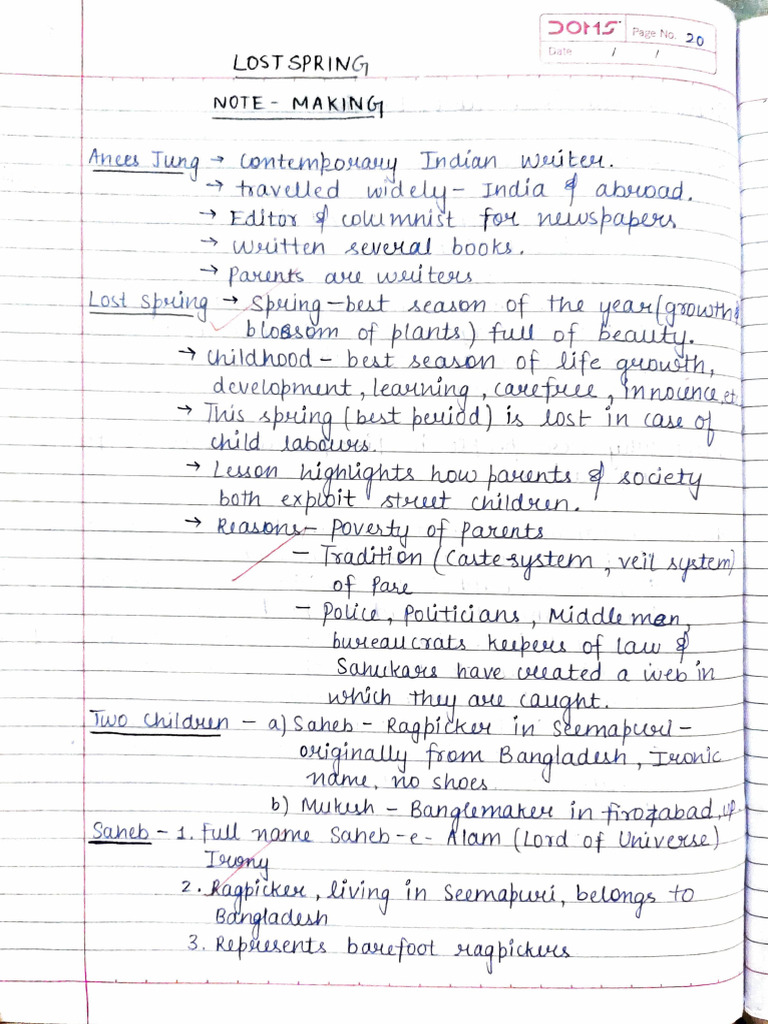 DOMS Page No. 20
Date / /
LOST SPRING
NOTE - MAKING
Anees Jung → Contemporary Indian writer.
→ travelled widely - India & abroad.
→ Editor & columnist for newspapers
→ Written several books.
→ Parents are writers
Lost Spring → Spring - best season of the year (growth &
blossom of plants) full of beauty.
→ Childhood - best season of life growth,
development, learning, carefree, innocence, et
→ This spring (best period) is lost in case of
child labours.
→ Lesson highlights how parents & society
both exploit street children.
→ Reasons - Poverty of Parents
- Tradition (Caste system, veil system)
of Pare
- Police, Politicians, Middle man,
bureaucrats keepers of law &
Sahukars have created a web in
which they are caught.
Two Children - a) Saheb - Ragpicker in Seemapuri -
originally from Bangladesh, Ironic
name, no shoes
b) Mukesh - Banglemaker in firozabad, UP
Saheb - 1. Full name Saheb-e-Alam (Lord of Universe)
Irony
2. Ragpicker, living in Seemapuri, belongs to
Bangladesh
3. Represents barefoot ragpickers